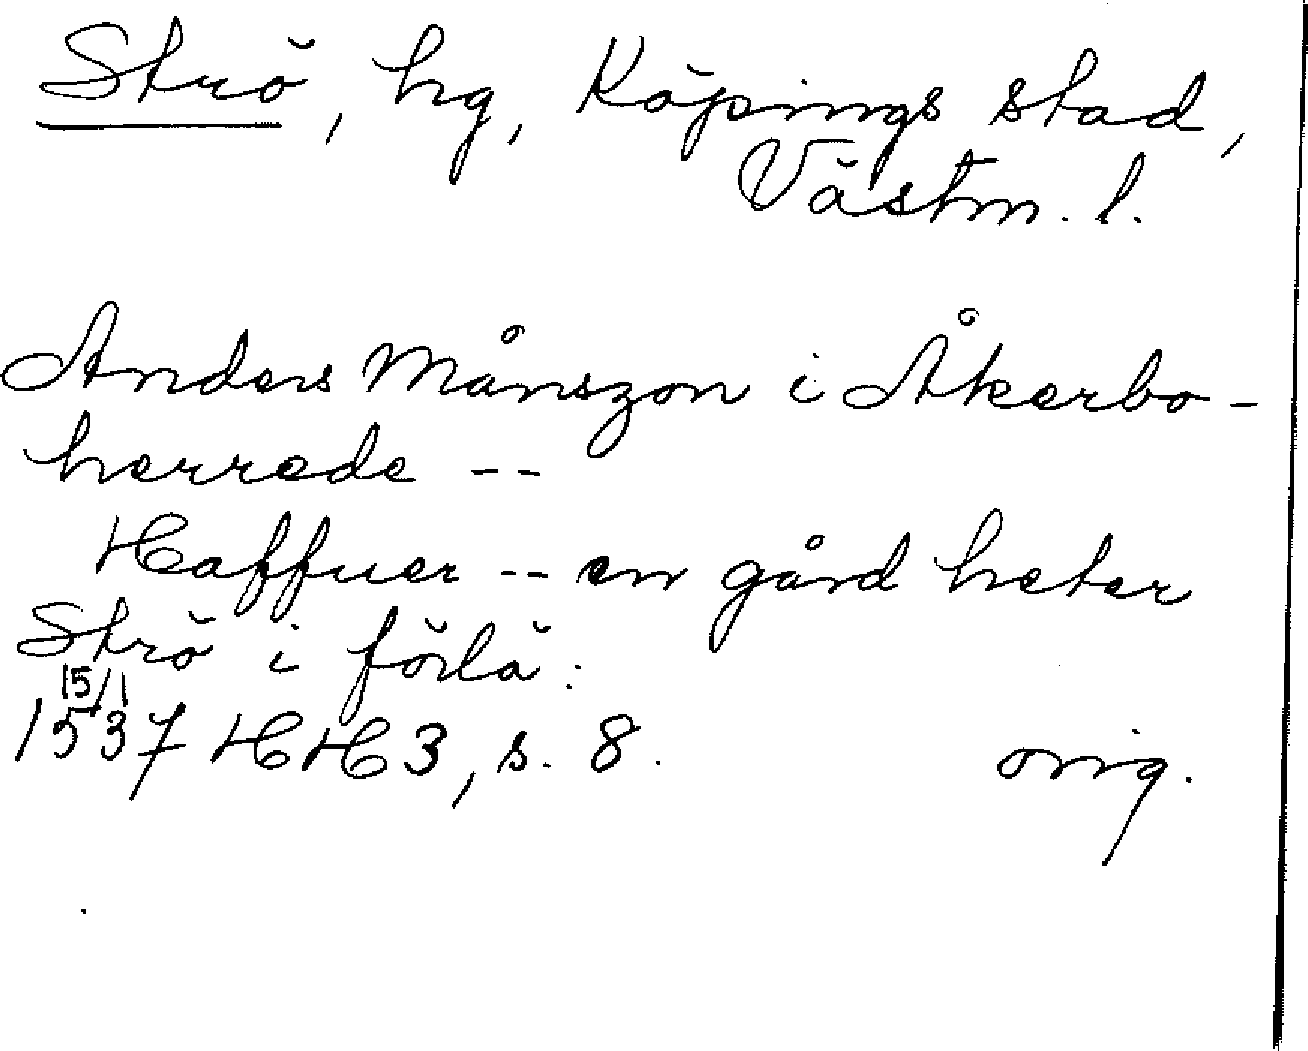 Strö, hg, Köpings stad,
Västm. l.
Anders Månszon i Åkerbo-
herrede --
Haffuer -- en gård heter
Strö i förlä.
15/1
1537 HH 3, s. 8. orig.